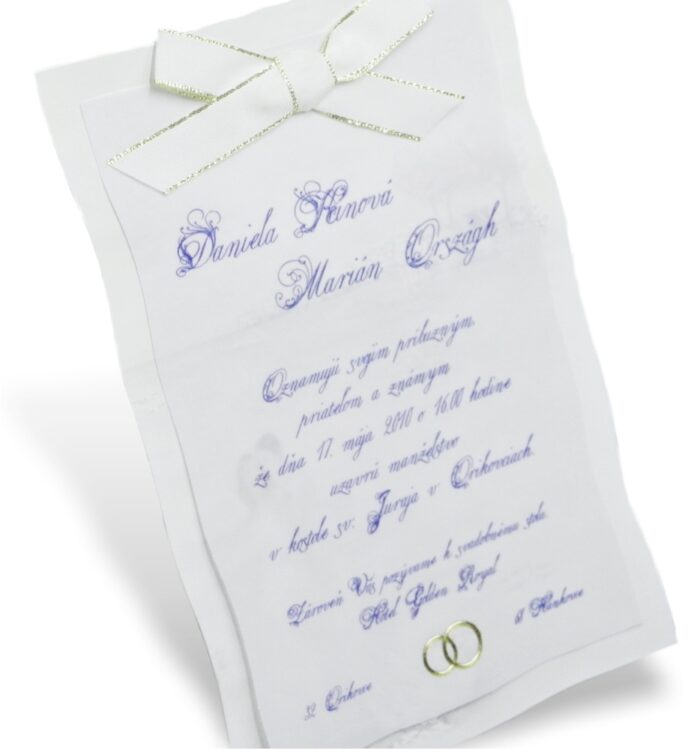 Daniela Panová
Marián Országh
Oznamujú svojim príbuzným,
priateľom a známym
že dňa 17. mája 2010 o 16.00 hodine
uzavrú manželstvo
v kostole sv. Juraja v Orikovciach.
Zároveň Vás pozývame k svadobnému stolu.
Hotel Golden Royal
32 Orikovce